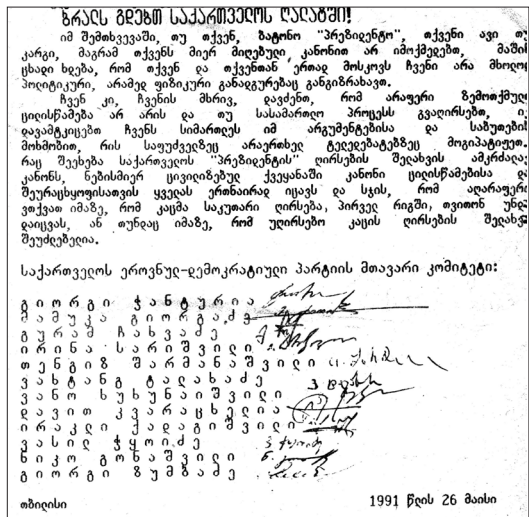 ბრალს გდებთ საქართველოს ღალატში!
იმ შემთხვევაში, თუ თქვენ, ბატონო "პრეზიდენტო", თქვენი ავი თუ
კარგი, მაგრამ თქვენს მიერ მიღებული კანონით არ იმოქმედებთ, მაშინ
ცხადი ხდება, რომ თქვენ და თქვენთან ერთად მოსკოვს ჩვენი არა მხოლოდ
პოლიტიკური, არამედ ფიზიკური განადგურებაც განგიზრახავთ.
ჩვენ კი, ჩვენის მხრივ, დავძენთ, რომ არაფერი ზემოთქმული
ცილისწამება არ არის და თუ სასამართლო პროცესს გვაღირსებთ,
დავამტკიცებთ ჩვენს სიმართლეს იმ არგუმენტებისა და საბუთების
მოხმობით, რის საფუძველზეც არაერთხელ ტელედებატებზეც მოგიპატიჟეთ.
რაც შეეხება საქართველოს "პრეზიდენტის" ღირსების შელახვის ამკრძალავ
კანონს, ნებისმიერ ცივილიზებულ ქვეყანაში კანონი ცილისწამებისა და
შეურაცხყოფისათვის ყველას ერთნაირად იცავს და სჯის, რომ აღარაფერი
ვთქვათ იმაზე, რომ კაცმა საკუთარი ღირსება, პირველ რიგში, თვითონ უნდა
დაიცვას, ან თუნდაც იმაზე, რომ უღირსებო კაცის ღირსების შელახვა
შეუძლებელია.
საქართველოს ეროვნულ-დემოკრატიული პარტიის მთავარი კომიტეტი:
გიორგი ჭანტურია
მამუკა გიორგაძე
გურამ ჩახვაძე
ირინა სარიშვილი
თენგიზ შარმანაშვილი
ვახტანგ ტალახაძე
ვანო ხუხუნაიშვილი
დავით კვარაცხელია
ირაკლი ქადაგიშვილი
ვასილ ჭყოიძე
ნიკო გონაშვილი
გიორგი ზუმბაძე
თბილისი 1991 წლის 26 მაისი